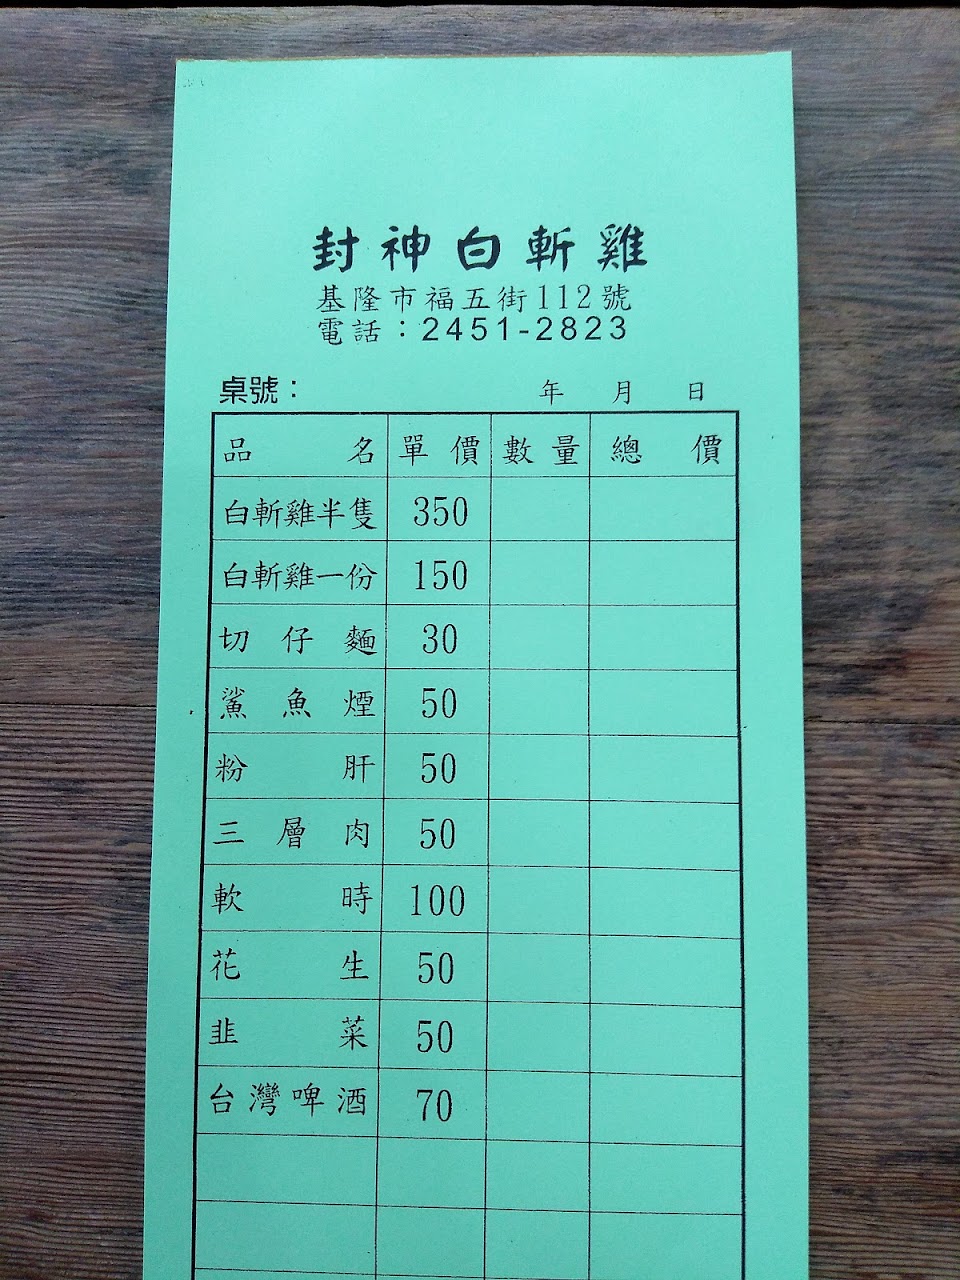 封神白斬雞
基隆市福五街112號
電話：2451-2823
桌號： 年 月 日
品名 單價 數量 總價
白斬雞半隻 350
白斬雞一份 150
切仔麵 30
鯊魚煙 50
粉肝 50
三層肉 50
軟時 100
花生 50
韭菜 50
台灣啤酒 70